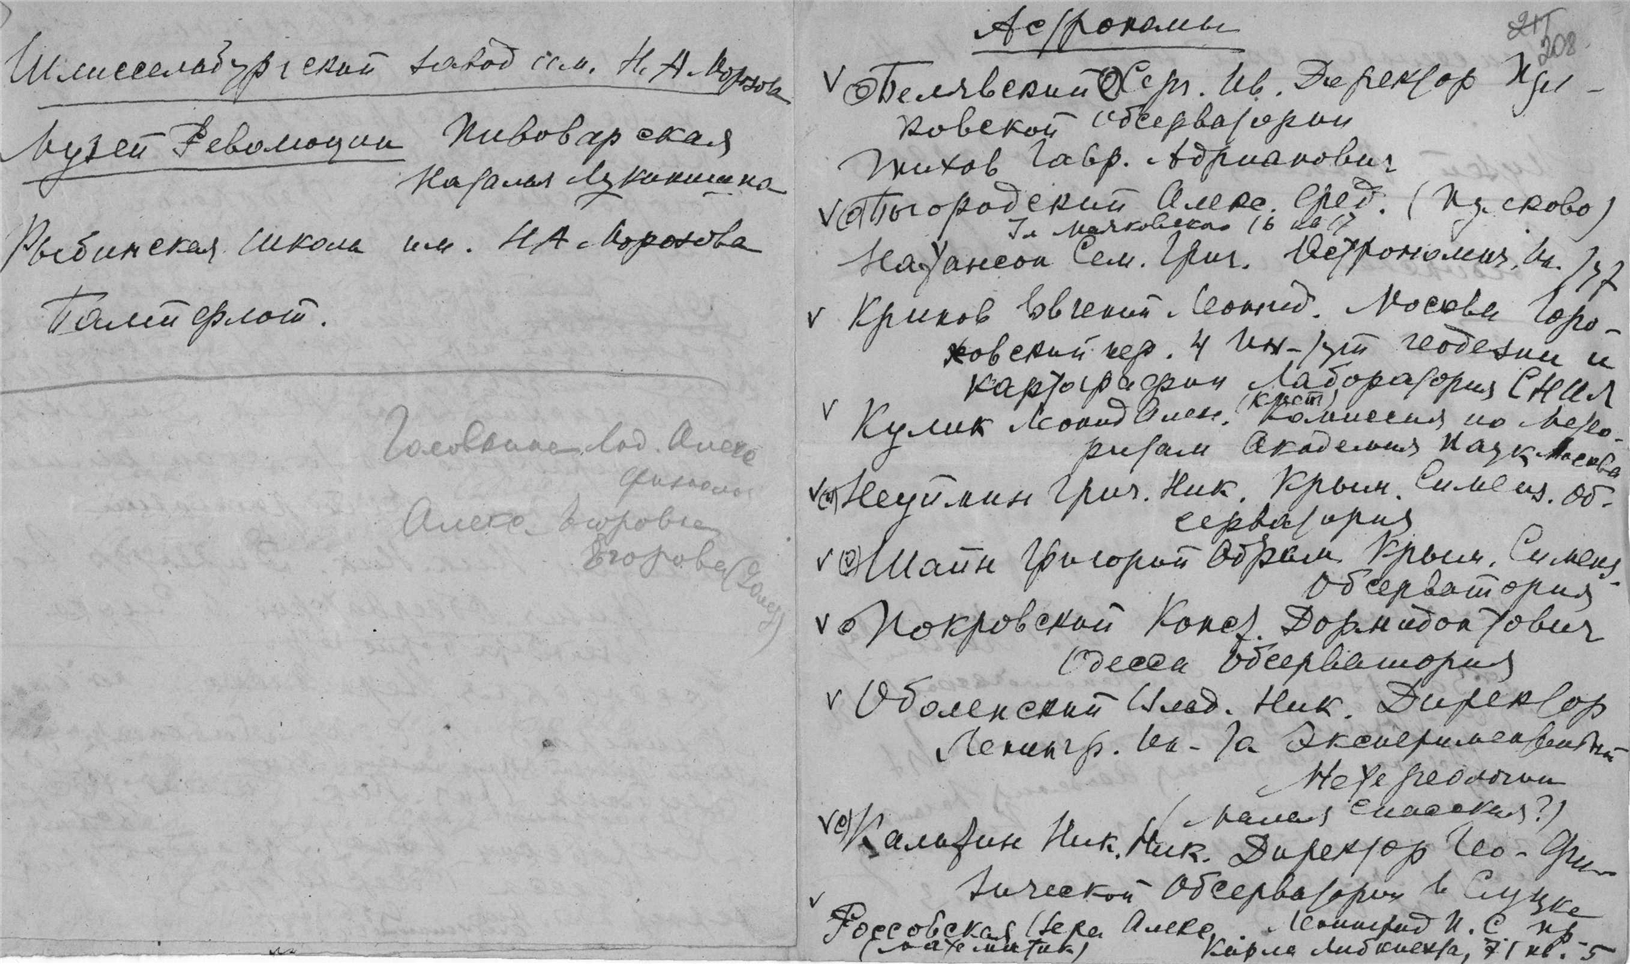 Шлиссельбургский завод им. Н. А. Морозова
Музей Революции Пивоварская
Наталья Лукинишна
Рыбинская школа им. НА Морозова
Балтфлот.
Алекс. Егоровна
Егорова
208
Астрономы
V Белявский Серг. Ив. Директор Пул-
ковской обсерватории
Тихов Гавр. Адрианович
V Богородский Алекс. Фед. (Пулково)
Ул Маяковского 16 кв 17
Натансон Сем. Григ. Астрономич. Ин-тут
V Кринов Евгений Леонид. Москва Горо-
ховский пер. 4 Ин-тут геодезии и
картографии Лаборатория СНИЛ
V Кулик Леонид Алек. Комиссия по метео-
ритам Академия Наук Москва
V Неуймин Григ. Ник. Крым. Симеиз. Об-
серватория
V Шайн Григорий Абрам Крым. Симеиз.
Обсерватория
V Покровский Конст. Дормидонтович
Одесса Обсерватория
V Оболенский Влад. Ник. Директор
Ленингр. Ин-та Экспериментальной
Метереологии
(Малая Спасская?)
V Калитин Ник. Ник. Директор Гео-Фи-
зической Обсерватории в Слуцке
V Россовская Вера Алекс. Ленинград П. С. пр.
(Математик) Карла Либкнехта, 71 кв. 5